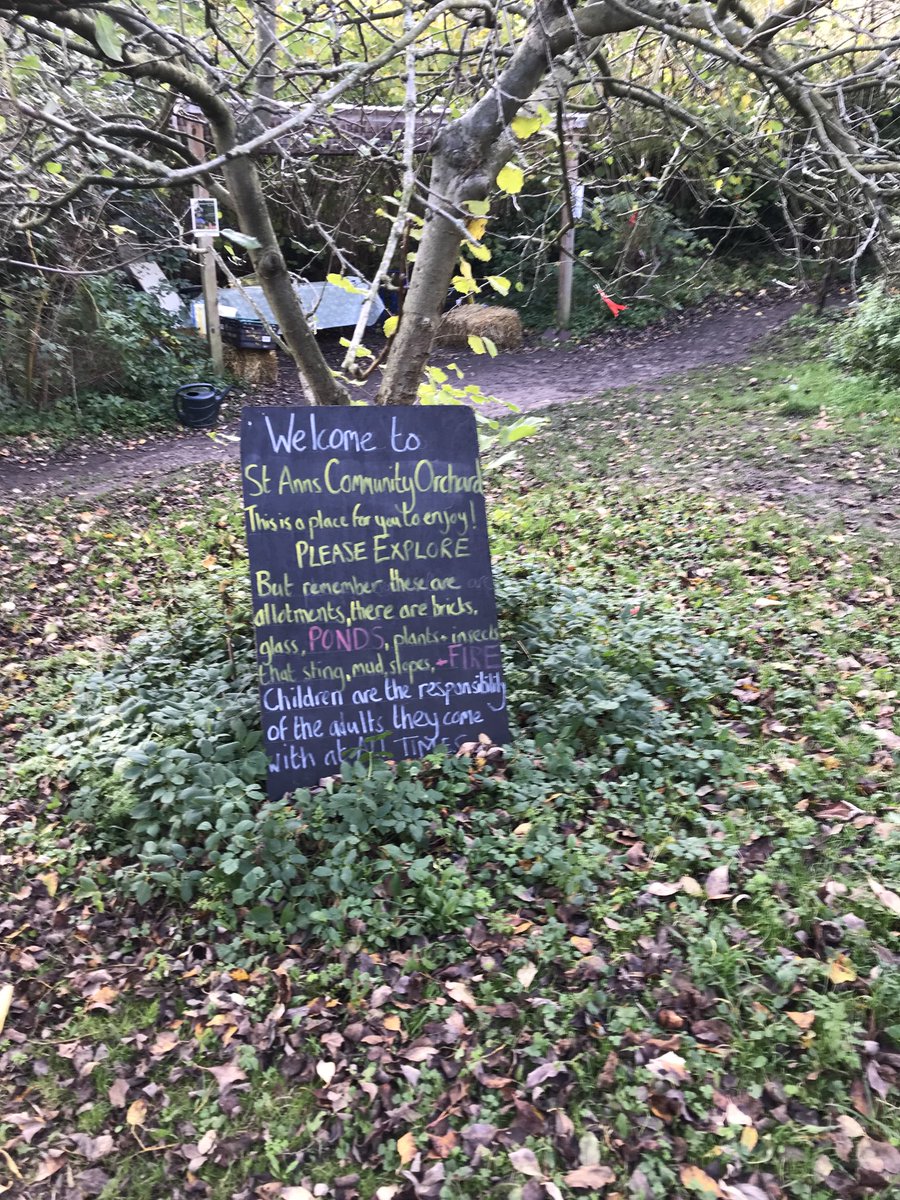 Welcome to
St Anns Community Orchard
This is a place for you to enjoy!
PLEASE EXPLORE
But remember these are
allotments, there are bricks,
glass, PONDS, plants + insects
that sting, mud slopes, + FIRE
Children are the responsibility
of the adults they come
with at ALL TIMES